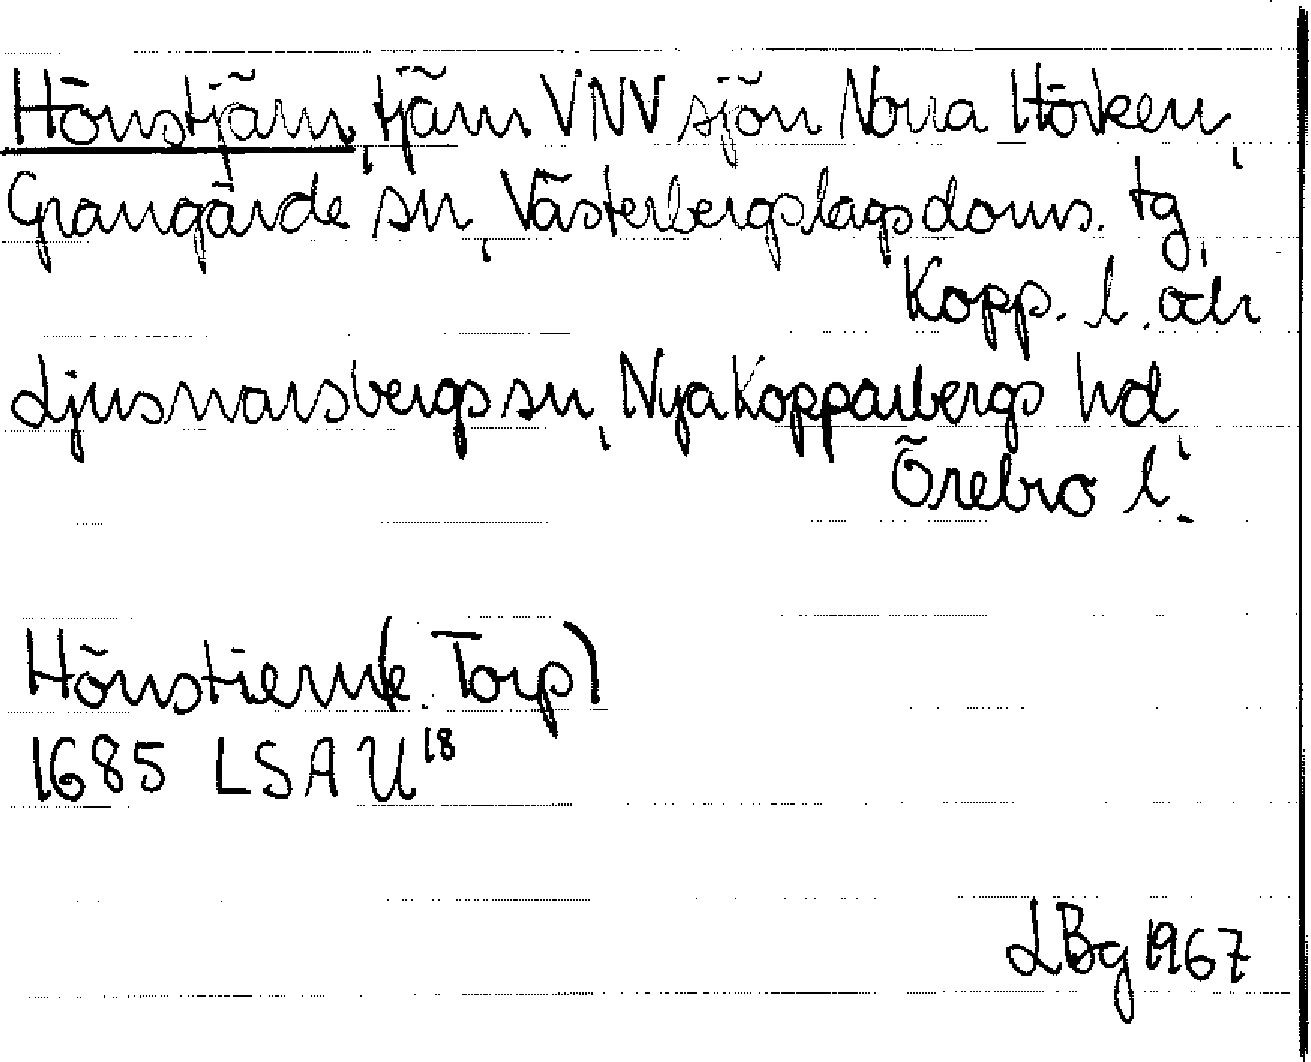 Hönstjärn, tjärn VNV sjön Norra Hörken,
Grangärde sn, Västerbergslags doms. tg,
Kopp. l. och
Ljusnarsbergs sn, Nya Kopparbergs hd,
Örebro l.
Hönstiern (k. Torp)
1685 LSA U18
LBg 1967